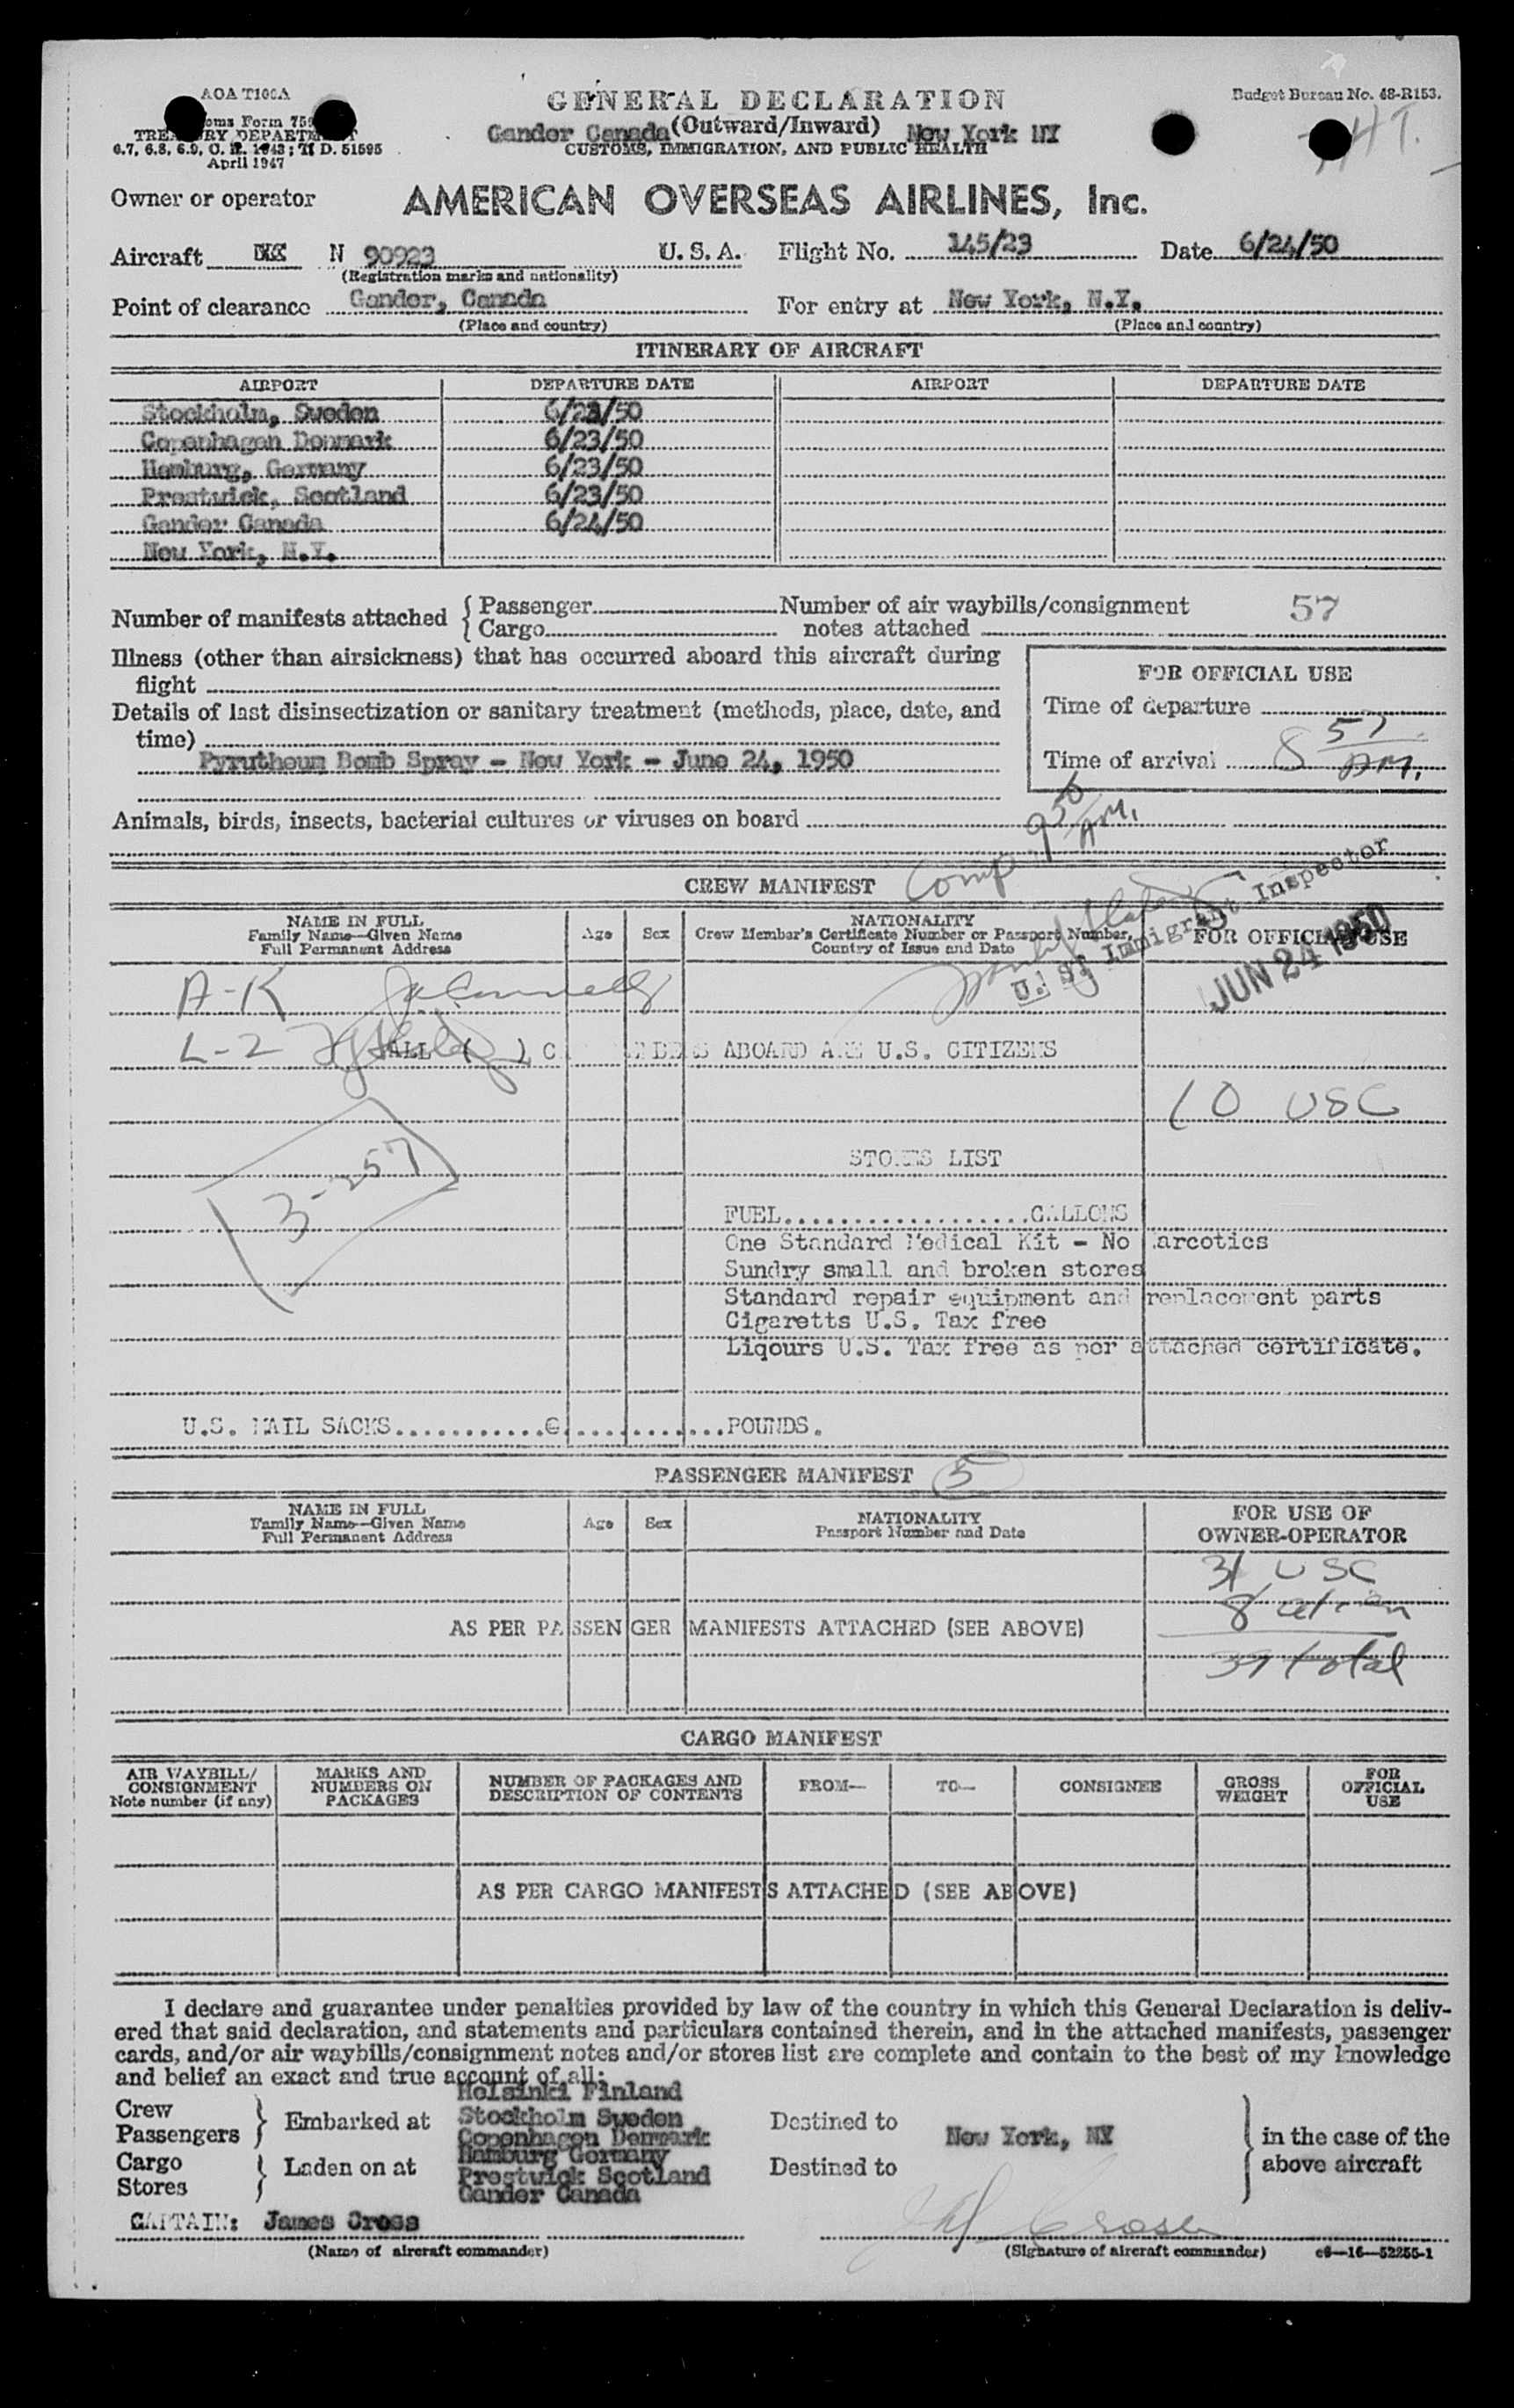 AOA T100A
GENERAL DECLARATION
Budget Bureau No. 48-R153.
Customs Form 75
(Outward/Inward)
Gander Canada New York NY
TREASURY DEPARTMENT
CUSTOMS, IMMIGRATION, AND PUBLIC HEALTH
6.7, 6.8, 6.9, C. R. 1943; T. D. 51595
April 1947
Owner or operator AMERICAN OVERSEAS AIRLINES, Inc.
Aircraft N 90923 U. S. A. Flight No. 145/23 Date 6/24/50
(Registration marks and nationality)
Point of clearance Gander, Canada For entry at New York, N.Y.
(Place and country) (Place and country)
ITINERARY OF AIRCRAFT
AIRPORT DEPARTURE DATE AIRPORT DEPARTURE DATE
Stockholm, Sweden 6/23/50
Copenhagen Denmark 6/23/50
Hamburg, Germany 6/23/50
Prestwick, Scotland 6/23/50
Gander Canada 6/24/50
New York, N.Y.
Number of manifests attached { Passenger Number of air waybills/consignment 57
Cargo notes attached
Illness (other than airsickness) that has occurred aboard this aircraft during
flight
FOR OFFICIAL USE
Details of last disinsectization or sanitary treatment (methods, place, date, and
time)
Time of departure
Pyrutheum Bomb Spray - New York - June 24, 1950
Time of arrival 8 57 AM.
Animals, birds, insects, bacterial cultures or viruses on board
Comp. 9 50 AM.
CREW MANIFEST
U. S. Immigrant Inspector
NAME IN FULL
Family Name—Given Name
Full Permanent Address
Age Sex
NATIONALITY
Crew Member's Certificate Number or Passport Number,
Country of Issue and Date
FOR OFFICIAL USE
JUN 24 1950
A-K
L-2 ALL ( ) C ABOARD ARE U.S. CITIZENS
10 USC
3-257
STORES LIST
FUEL...................GALLONS
One Standard Medical Kit - No Narcotics
Sundry small and broken stores
Standard repair equipment and replacement parts
Cigaretts U.S. Tax free
Liqours U.S. Tax free as per attached certificate.
U.S. MAIL SACKS...........@............POUNDS.
PASSENGER MANIFEST 5
NAME IN FULL
Family Name—Given Name
Full Permanent Address
Age Sex
NATIONALITY
Passport Number and Date
FOR USE OF
OWNER-OPERATOR
31 USC
8 alien
AS PER PASSENGER MANIFESTS ATTACHED (SEE ABOVE)
39 total
CARGO MANIFEST
AIR WAYBILL/
CONSIGNMENT
Note number (if any)
MARKS AND
NUMBERS ON
PACKAGES
NUMBER OF PACKAGES AND
DESCRIPTION OF CONTENTS
FROM— TO— CONSIGNEE
GROSS
WEIGHT
FOR
OFFICIAL
USE
AS PER CARGO MANIFESTS ATTACHED (SEE ABOVE)
I declare and guarantee under penalties provided by law of the country in which this General Declaration is deliv-
ered that said declaration, and statements and particulars contained therein, and in the attached manifests, passenger
cards, and/or air waybills/consignment notes and/or stores list are complete and contain to the best of my knowledge
and belief an exact and true account of all:
Helsinki Finland
Crew
Passengers } Embarked at Stockholm Sweden Destined to
Copenhagen Denmark New York, NY in the case of the
Hamburg Germany
Cargo
Stores } Laden on at Prestwick Scotland Destined to above aircraft
Gander Canada
CAPTAIN: James Cross
(Name of aircraft commander) (Signature of aircraft commander) c8—16—52255-1